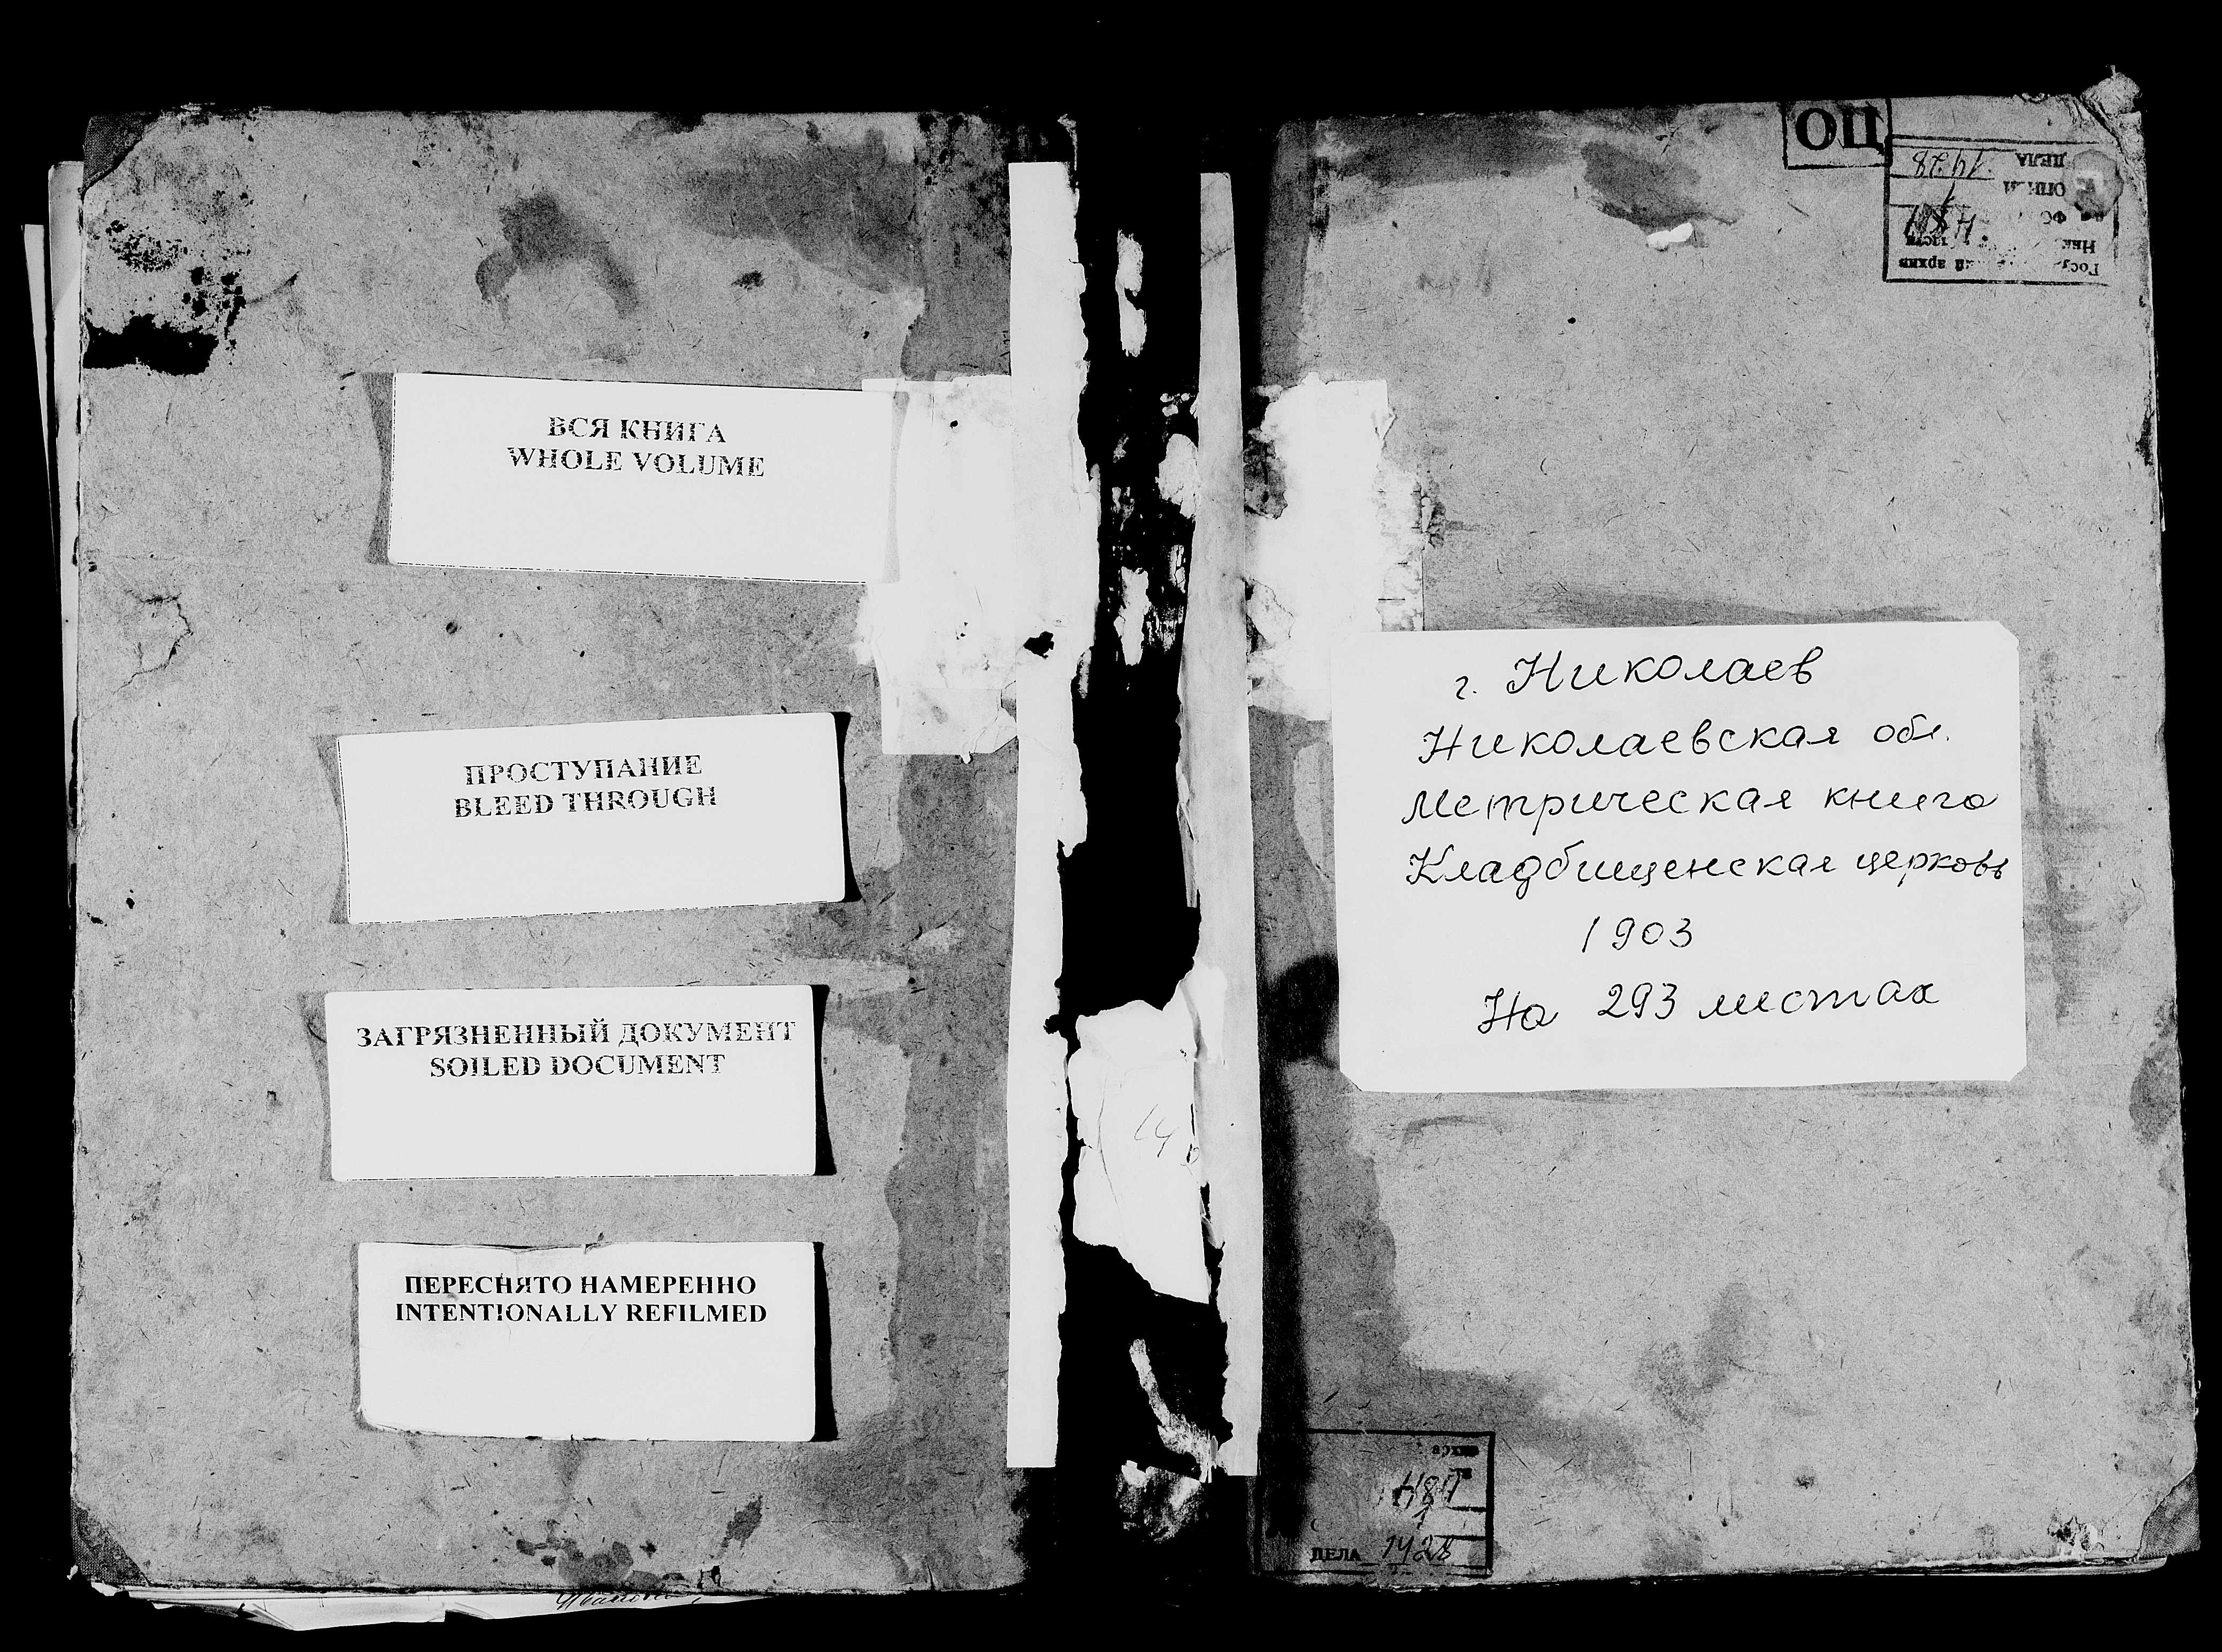 ВСЯ КНИГА
WHOLE VOLUME
ПРОСТУПАНИЕ
BLEED THROUGH
ЗАГРЯЗНЕННЫЙ ДОКУМЕНТ
SOILED DOCUMENT
ПЕРЕСНЯТО НАМЕРЕННО
INTENTIONALLY REFILMED
ОЦ
ДЕЛА 1428
архив
г. Николаев
Николаевская обл.
Метрическая книга
Кладбищенская церковь
1903
На 293 листах
484
1
ДЕЛА 1428